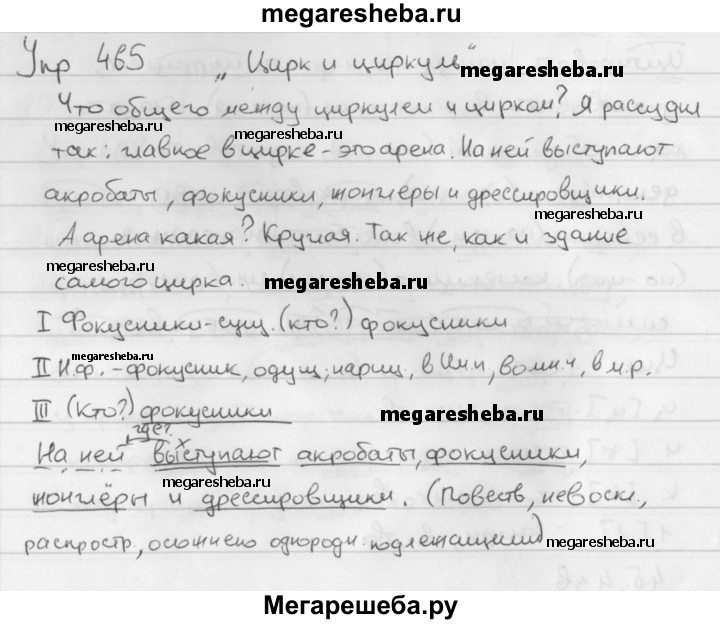 megaresheba.ru
Упр 465 „Цирк и циркуль“
megaresheba.ru
Что общего между циркулем и цирком? Я рассудил
megaresheba.ru
megaresheba.ru
так: главное в цирке - это арена. На ней выступают
акробаты, фокусники, жонглёры и дрессировщики.
megaresheba.ru
А арена какая? Круглая. Так же, как и здание
megaresheba.ru
самого цирка.
megaresheba.ru
I Фокусники - сущ. (кто?) фокусники
megaresheba.ru
II Н.ф. - фокусник, одуш, нариц, в Им.п, во мн.ч, в м.р.
III (Кто?) фокусники
megaresheba.ru
megaresheba.ru
где? х
На ней выступают акробаты, фокусники,
megaresheba.ru
жонглёры и дрессировщики. (Повеств, невоскл.,
распростр., осложнено однородн. подлежащими)
megaresheba.ru
Мегарешеба.ру